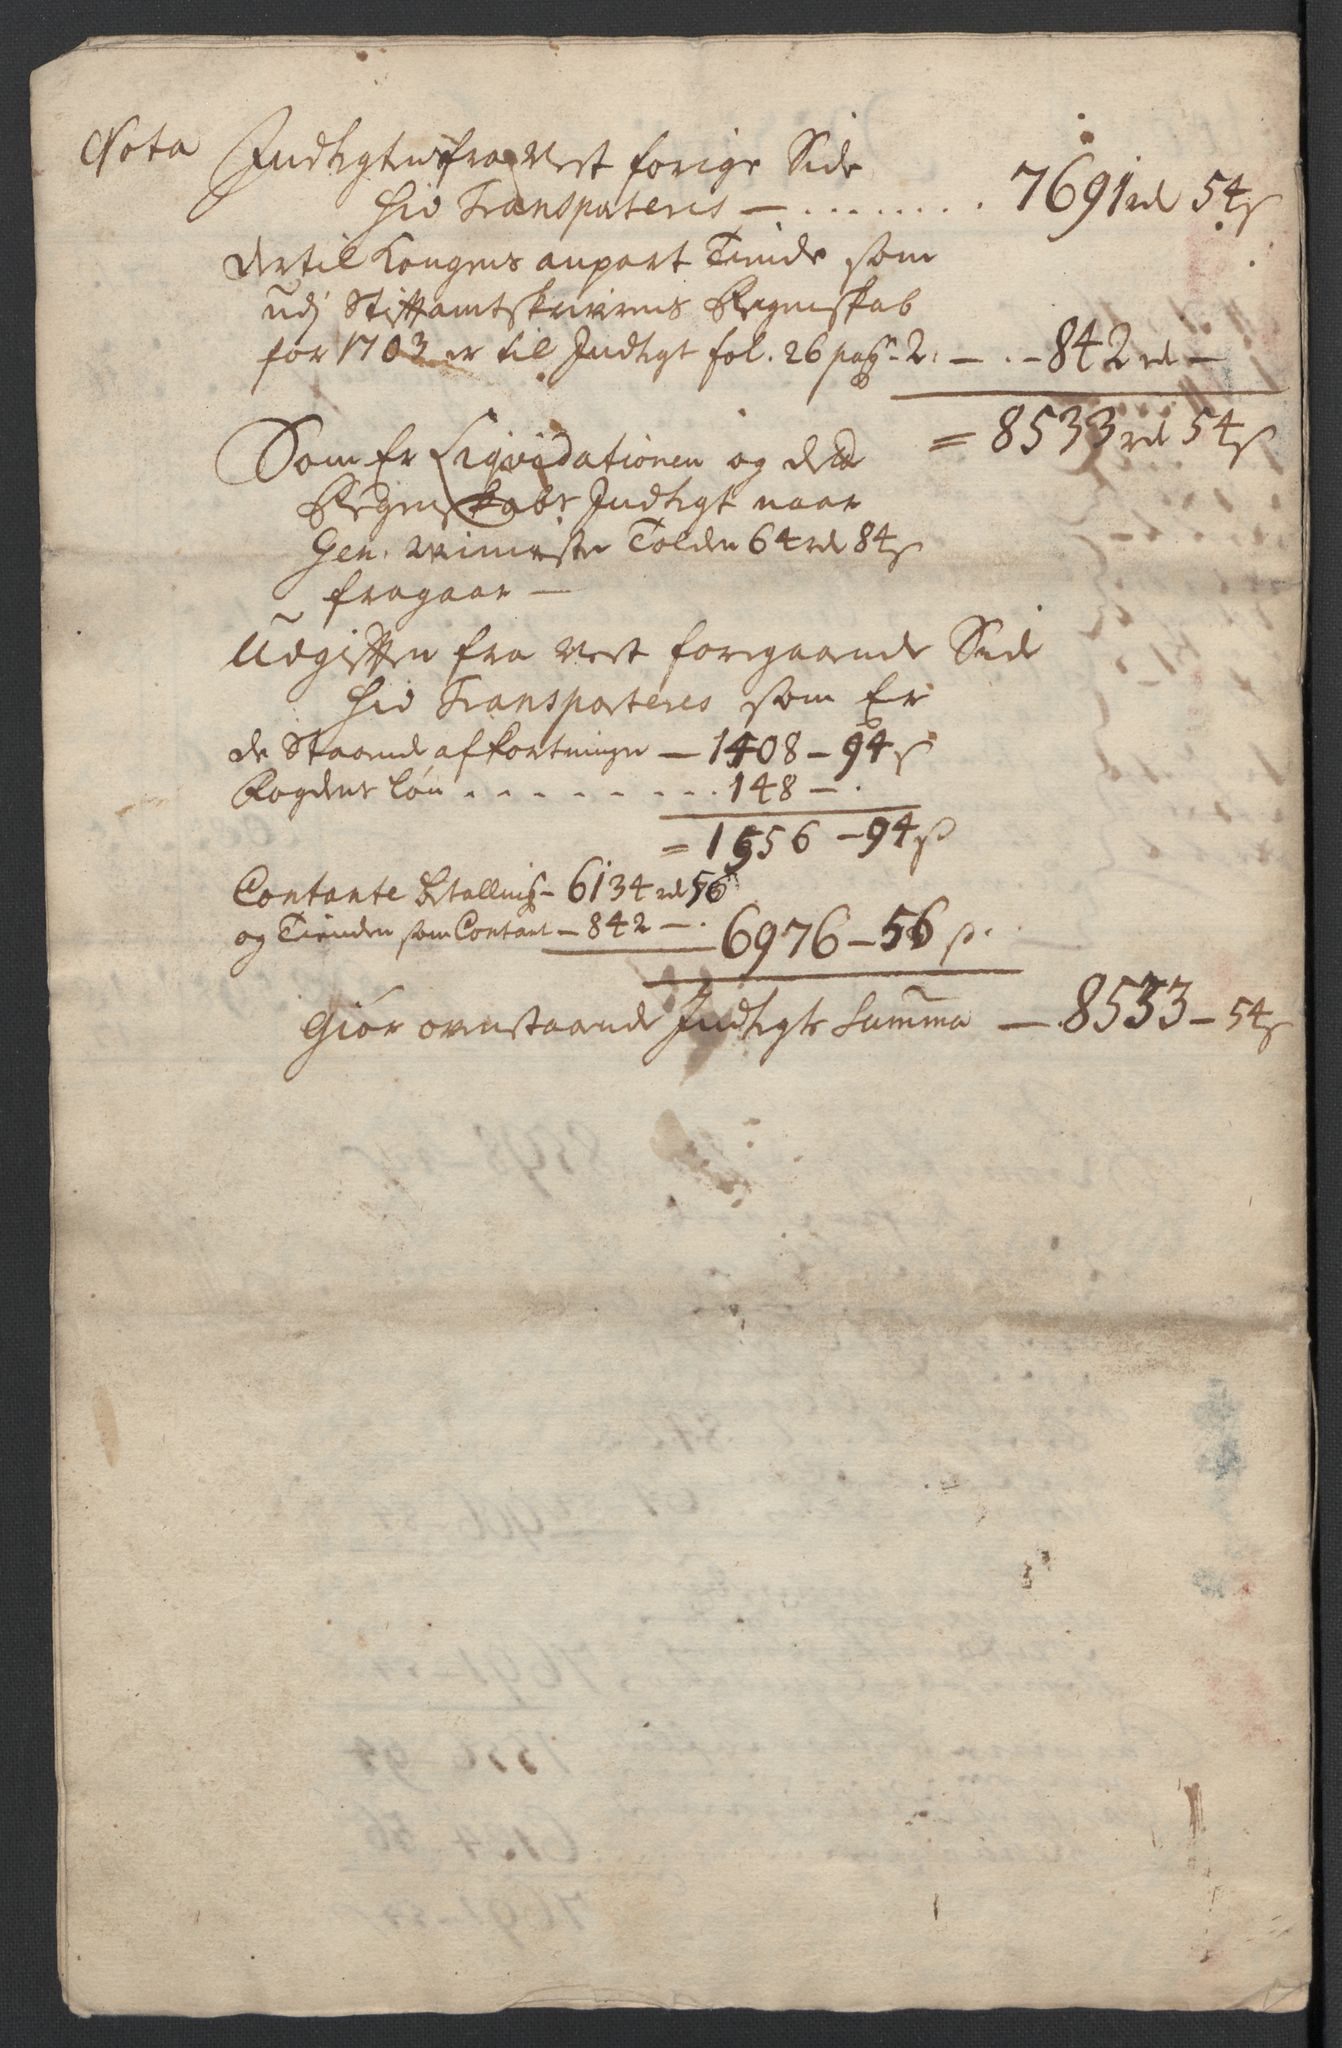 Nota Indtegten fra nest forige Side
hid Transporteris — . . . . . . . . 7691 rd 54 ß
dertil Kongens anpart Tiinde som
udj Stiftamtskrivrens Regenskab
for 1703 er til Indtegt fol. 26 pag 2. — . — 842 rd —
= 8533 rd 54 ß
Som Er Liqvidationen og dend
Regenskabs Indtegt naar
Gen. Tolden 64 rd 84 ß
fragaar —
Udgifften fra nest foregaaende Side
hid Transporteres som Er
de Staaende afkortninger — 1408 — 94 ß
Fogdens løn . . . . . . . . . 148 — .
= 1556 — 94 ß
Contante betalling — 6134 rd 56
og Tienden som Contant — 842 — . 6976 — 56 ß.
Giør ovenstaaende Indtegts Summa — 8533 — 54 ß